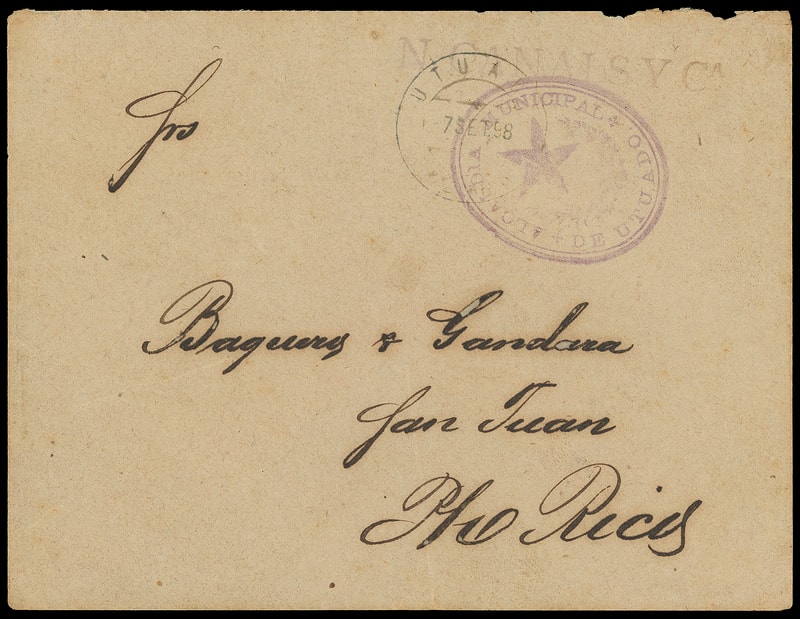 N. CANALS Y CA
UTUA
7 SET. 98
ALCALDIA MUNICIPAL
DE UTUADO.
Srs
Baquero & Gandara
San Juan
Pto Rico